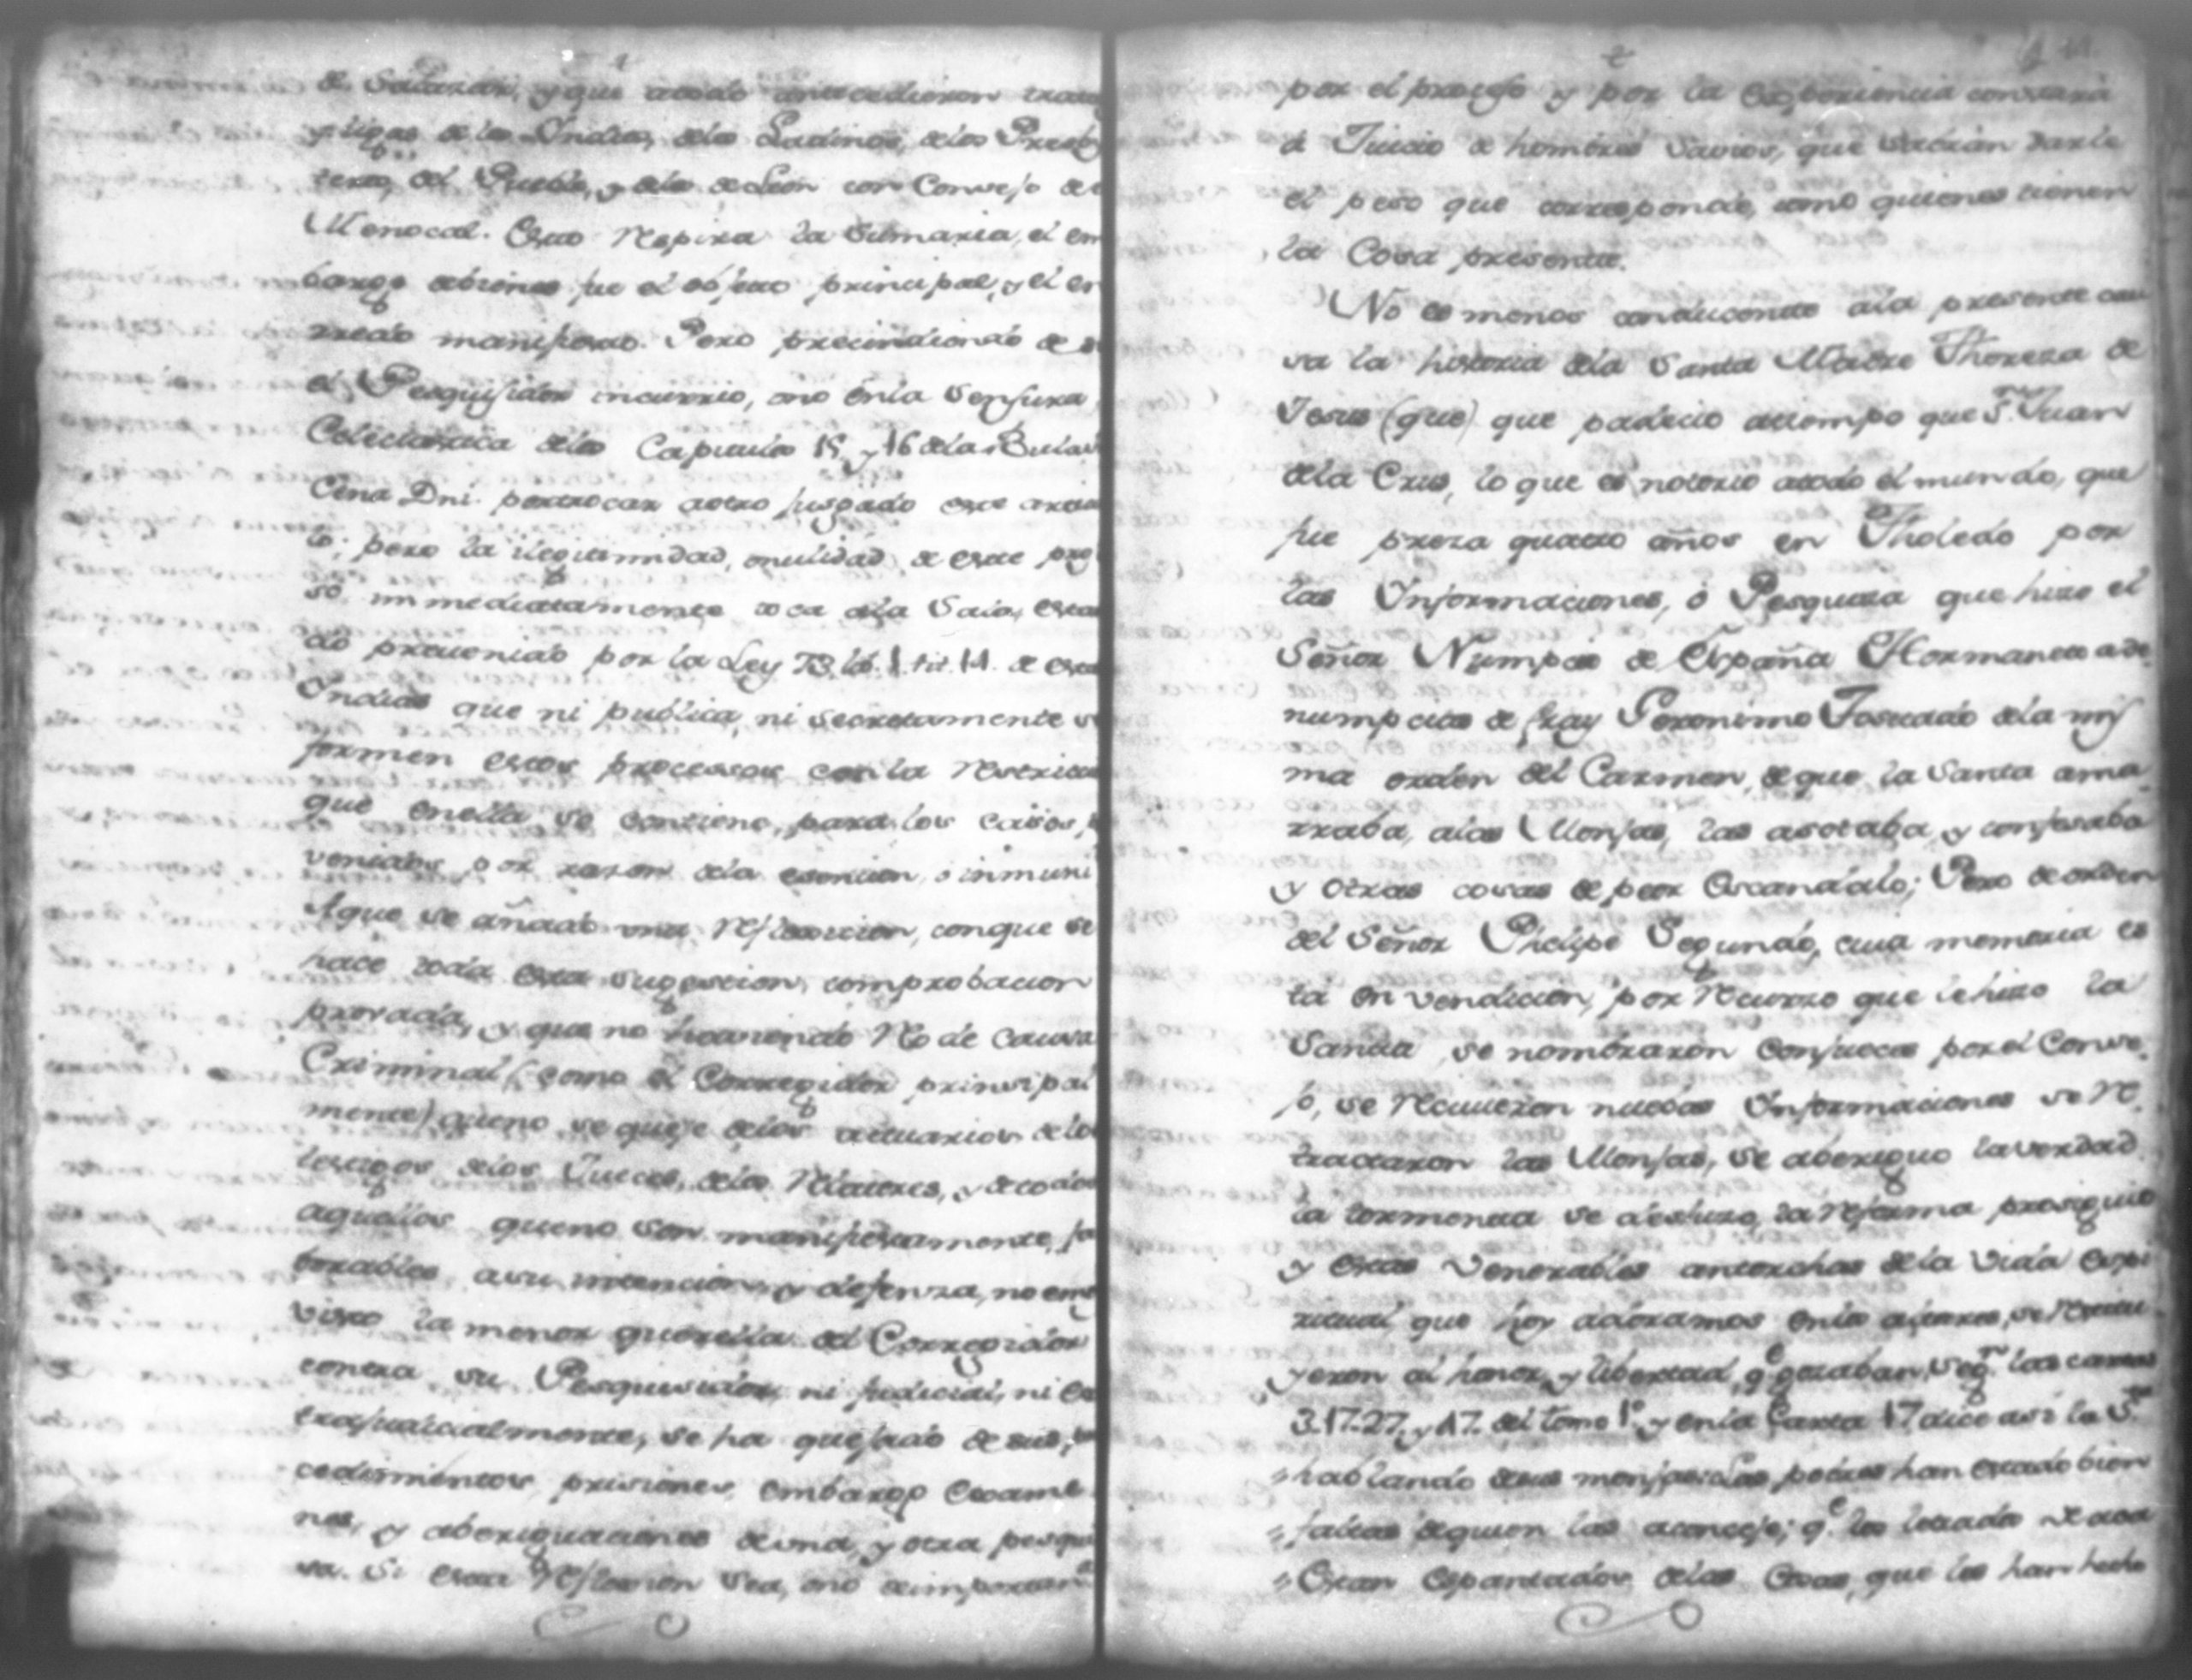 de Salazar, y que atodo antecedieron trata
y ligas de los Indios, delos Ladinos, delos Presby
teros, del Pueblo, y delos de Leon con Consejo de
Menocal. Esto Respira la Sumaria, el em
bargo debienes fue el objeto principal, y el en
redo manifiesto. Pero precindiendo de si
el Pesquisidor incurrio, ono enla Sensura
Eclesiastica delos Capitulos 15 y 16 dela Bula in
Cena Dni. portocar aotro jusgado este articu
lo; pero la ilegitimidad, onulidad de este pro
so immediatamente toca ala Sala, estan
do prevenido por la Ley 73. lib. 1. tit. 14. de estas
Indias que ni publica, ni secretamente se
formen estos processos con la
que enella se contiene, para los casos, p
venidos por razon dela esencion, o inmuni
Aque se añade una Reflexion, conque se
hace toda esta sugestion, comprobacion
provada, y que no haviendo Reo de Causa
Criminal (como el Corregidor principal
mente) queno se queje delos actuarios delos
testigos delos Jueces, delos Relatores, y detodos
aquellos queno son manifiestamente, fa
borables asu intencion, y defensa, no emos
visto la menor querella del Corregidor
contra su Pesquisidor, ni judicial, ni ex
trajudicialmente, se ha quejado de sus, pro
cedimientos prisiones, embargo exame
nes, y aberiguaciones deuna, y otra pesqui
sa. Si esta Reflexion sea, ono deimportan<sup>a</sup>
por el proceso y por la Experiencia constara
à Juicio de hombres Savios, que sabran darle
el peso que corresponde, como quienes tienen
la Cosa presente.
No es menos conducente ala presente cau
sa la historia dela Santa Madre Thereza de
Jesus (que) que padecio altiempo que S.<sup>n</sup> Juan
dela Crus, lo que es notorio atodo el mundo, que
fue preza quatro años en Tholedo por
las Informaciones, ó Pesquiza que hizo el
Señor Numpcio de España Hormaneto ade
numpcito de fray Geronimo Tostado dela mis
ma orden del Carmen, de que la Santa ama
rraba, alas Monjas, las asotaba, y confesaba
y otras cosas de peor Escandalo; Pero de orden
del Señor Phelipe Segundo, cuia memoria es
ta en vendicion, por Recurzo que lehizo la
Santa se nombraron Conjueces por el Conse
jo, se Recivieron nuebas Informaciones se Re
tractaron las Monjas, se aberiguo la verdad
la tormenta se deshizo, la Reforma prosiguio
y estas Venerables antorchas dela Vida Espi
ritual que hoy adoramos enlos altares, se Restitu
yeron al honor, y libertad, q<sup>e</sup> gozaban, seg<sup>n</sup> las cartas
3.17.27. y 47. del tomo 1.º y enla Carta 17. dice asi la S.<sup>ta</sup>
„ hablando desus monjas: Las pobres han estado bien
„ faltas dequien las aconseje; q<sup>e</sup> los letrados de aca
„ Estan Espantados delas Cosas, que les han hecho